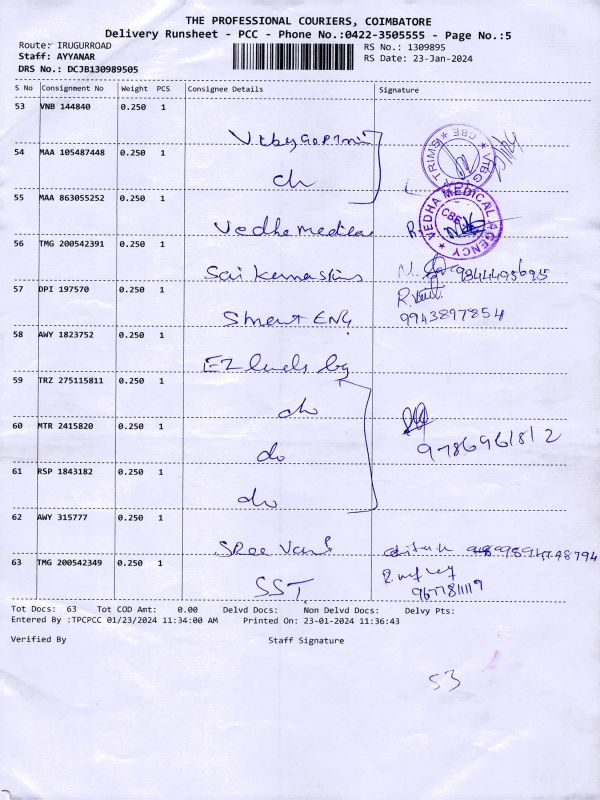 THE PROFESSIONAL COURIERS, COIMBATORE
Delivery Runsheet - PCC - Phone No.:0422-3505555 - Page No.:5
Route: IRUGURROAD
RS No.: 1309895
Staff: AYYANAR
RS Date: 23-Jan-2024
DRS No.: DCJB130989505
S No Consignment No Weight PCS Consignee Details Signature
53 VNB 144840 0.250 1
54 MAA 105487448 0.250 1
55 MAA 863055252 0.250 1
Vedha medical
VEDHA MEDICAL AGENCY
CBE
56 TMG 200542391 0.250 1
Sai
57 DPI 197570 0.250 1
Smart ENG
9943897854
58 AWY 1823752 0.250 1
EZ
59 TRZ 275115811 0.250 1
do
60 MTR 2415820 0.250 1
do
9786961812
61 RSP 1843182 0.250 1
do
62 AWY 315777 0.250 1
SRee
63 TMG 200542349 0.250 1
SST
Tot Docs: 63 Tot COD Amt: 0.00 Delvd Docs: Non Delvd Docs: Delvy Pts:
Entered By :TPCPCC 01/23/2024 11:34:00 AM Printed On: 23-01-2024 11:36:43
Verified By Staff Signature
53